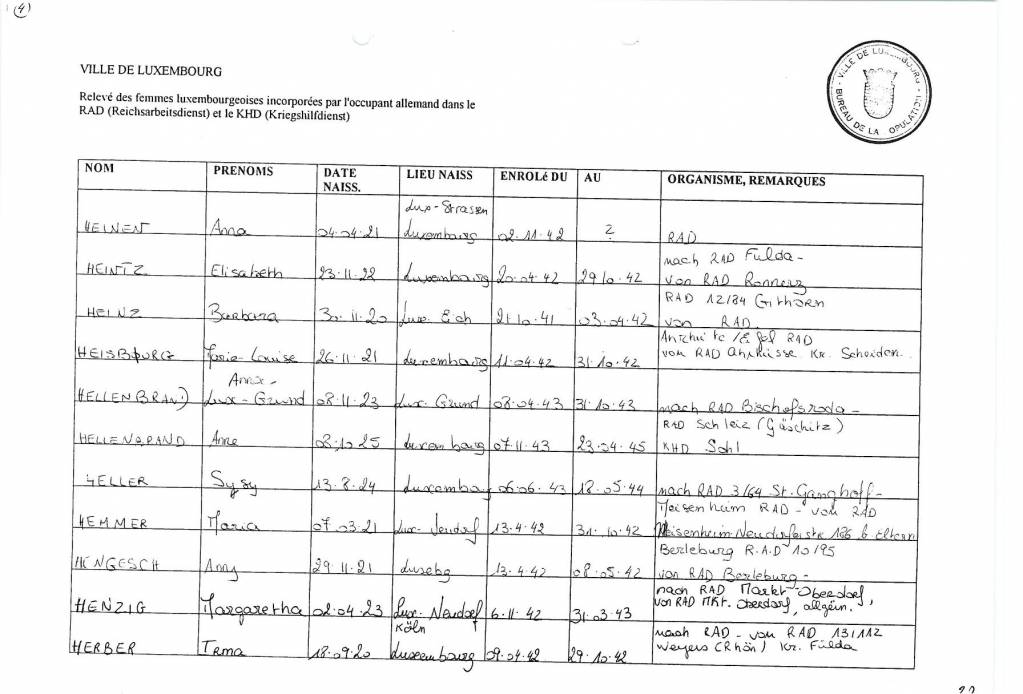 (4)
VILLE DE LUXEMBOURG
Relevé des femmes luxembourgeoises incorporées par l'occupant allemand dans le
RAD (Reichsarbeitsdienst) et le KHD (Kriegshilfdienst)
VILLE DE LUXEMBOURG
BUREAU DE LA POPULATION
NOM PRENOMS DATE NAISS. LIEU NAISS ENROLé DU AU ORGANISME, REMARQUES
Lux-Strassen
HEINEN Anna 04.04.21 Luxembourg 02.11.42 ? RAD
nach RAD Fulda-
HEINTZ Elisabeth 23.11.22 Luxembourg 20.04.42 29.10.42 von RAD Ronnerz
RAD 12/84 Githorn
HEINZ Barbara 30.11.20 Lux. Eich 21.10.41 03.04.42 von RAD.
RAD
HEISBOURG Marie-Louise 26.11.21 Luxembourg 11.04.42 31.10.42 von RAD Kr. Scheiden.
Anne-
HELLENBRAND Lux-Grund 08.11.23 Lux. Grund 08.04.43 31.10.43 nach RAD Bischofsroda-
RAD Schleiz (Gäschitz)
HELLENBRAND Anne 08.10.25 Luxembourg 07.11.43 23.04.45 KHD Sohl
HELLER Sysy 13.8.24 Luxembourg 06.06.43 18.05.44 nach RAD 3/64 St. Ganghoff-
Meisenheim RAD - von RAD
HEMMER Maria 07.03.21 Lux-Neudorf 13.4.42 31.10.42 Meisenheim-Neudorferstr 186 b. Eltern
Berleburg R.A.D 10/95
HENGESCH Anny 29.11.21 Luxebg 13.4.42 08.05.42 von RAD Berleburg-
nach RAD Markt Oberdorf,
HENZIG Margaretha 02.04.23 Lux. Neudorf 6.11.42 31.03.43 von RAD Mkt. Oberdorf, allgein.
Köln nach RAD - von RAD 13/112
HERBER Irma 18.09.20 Luxembourg 09.04.42 29.10.42 Weyers (Rhön) Kr. Fulda